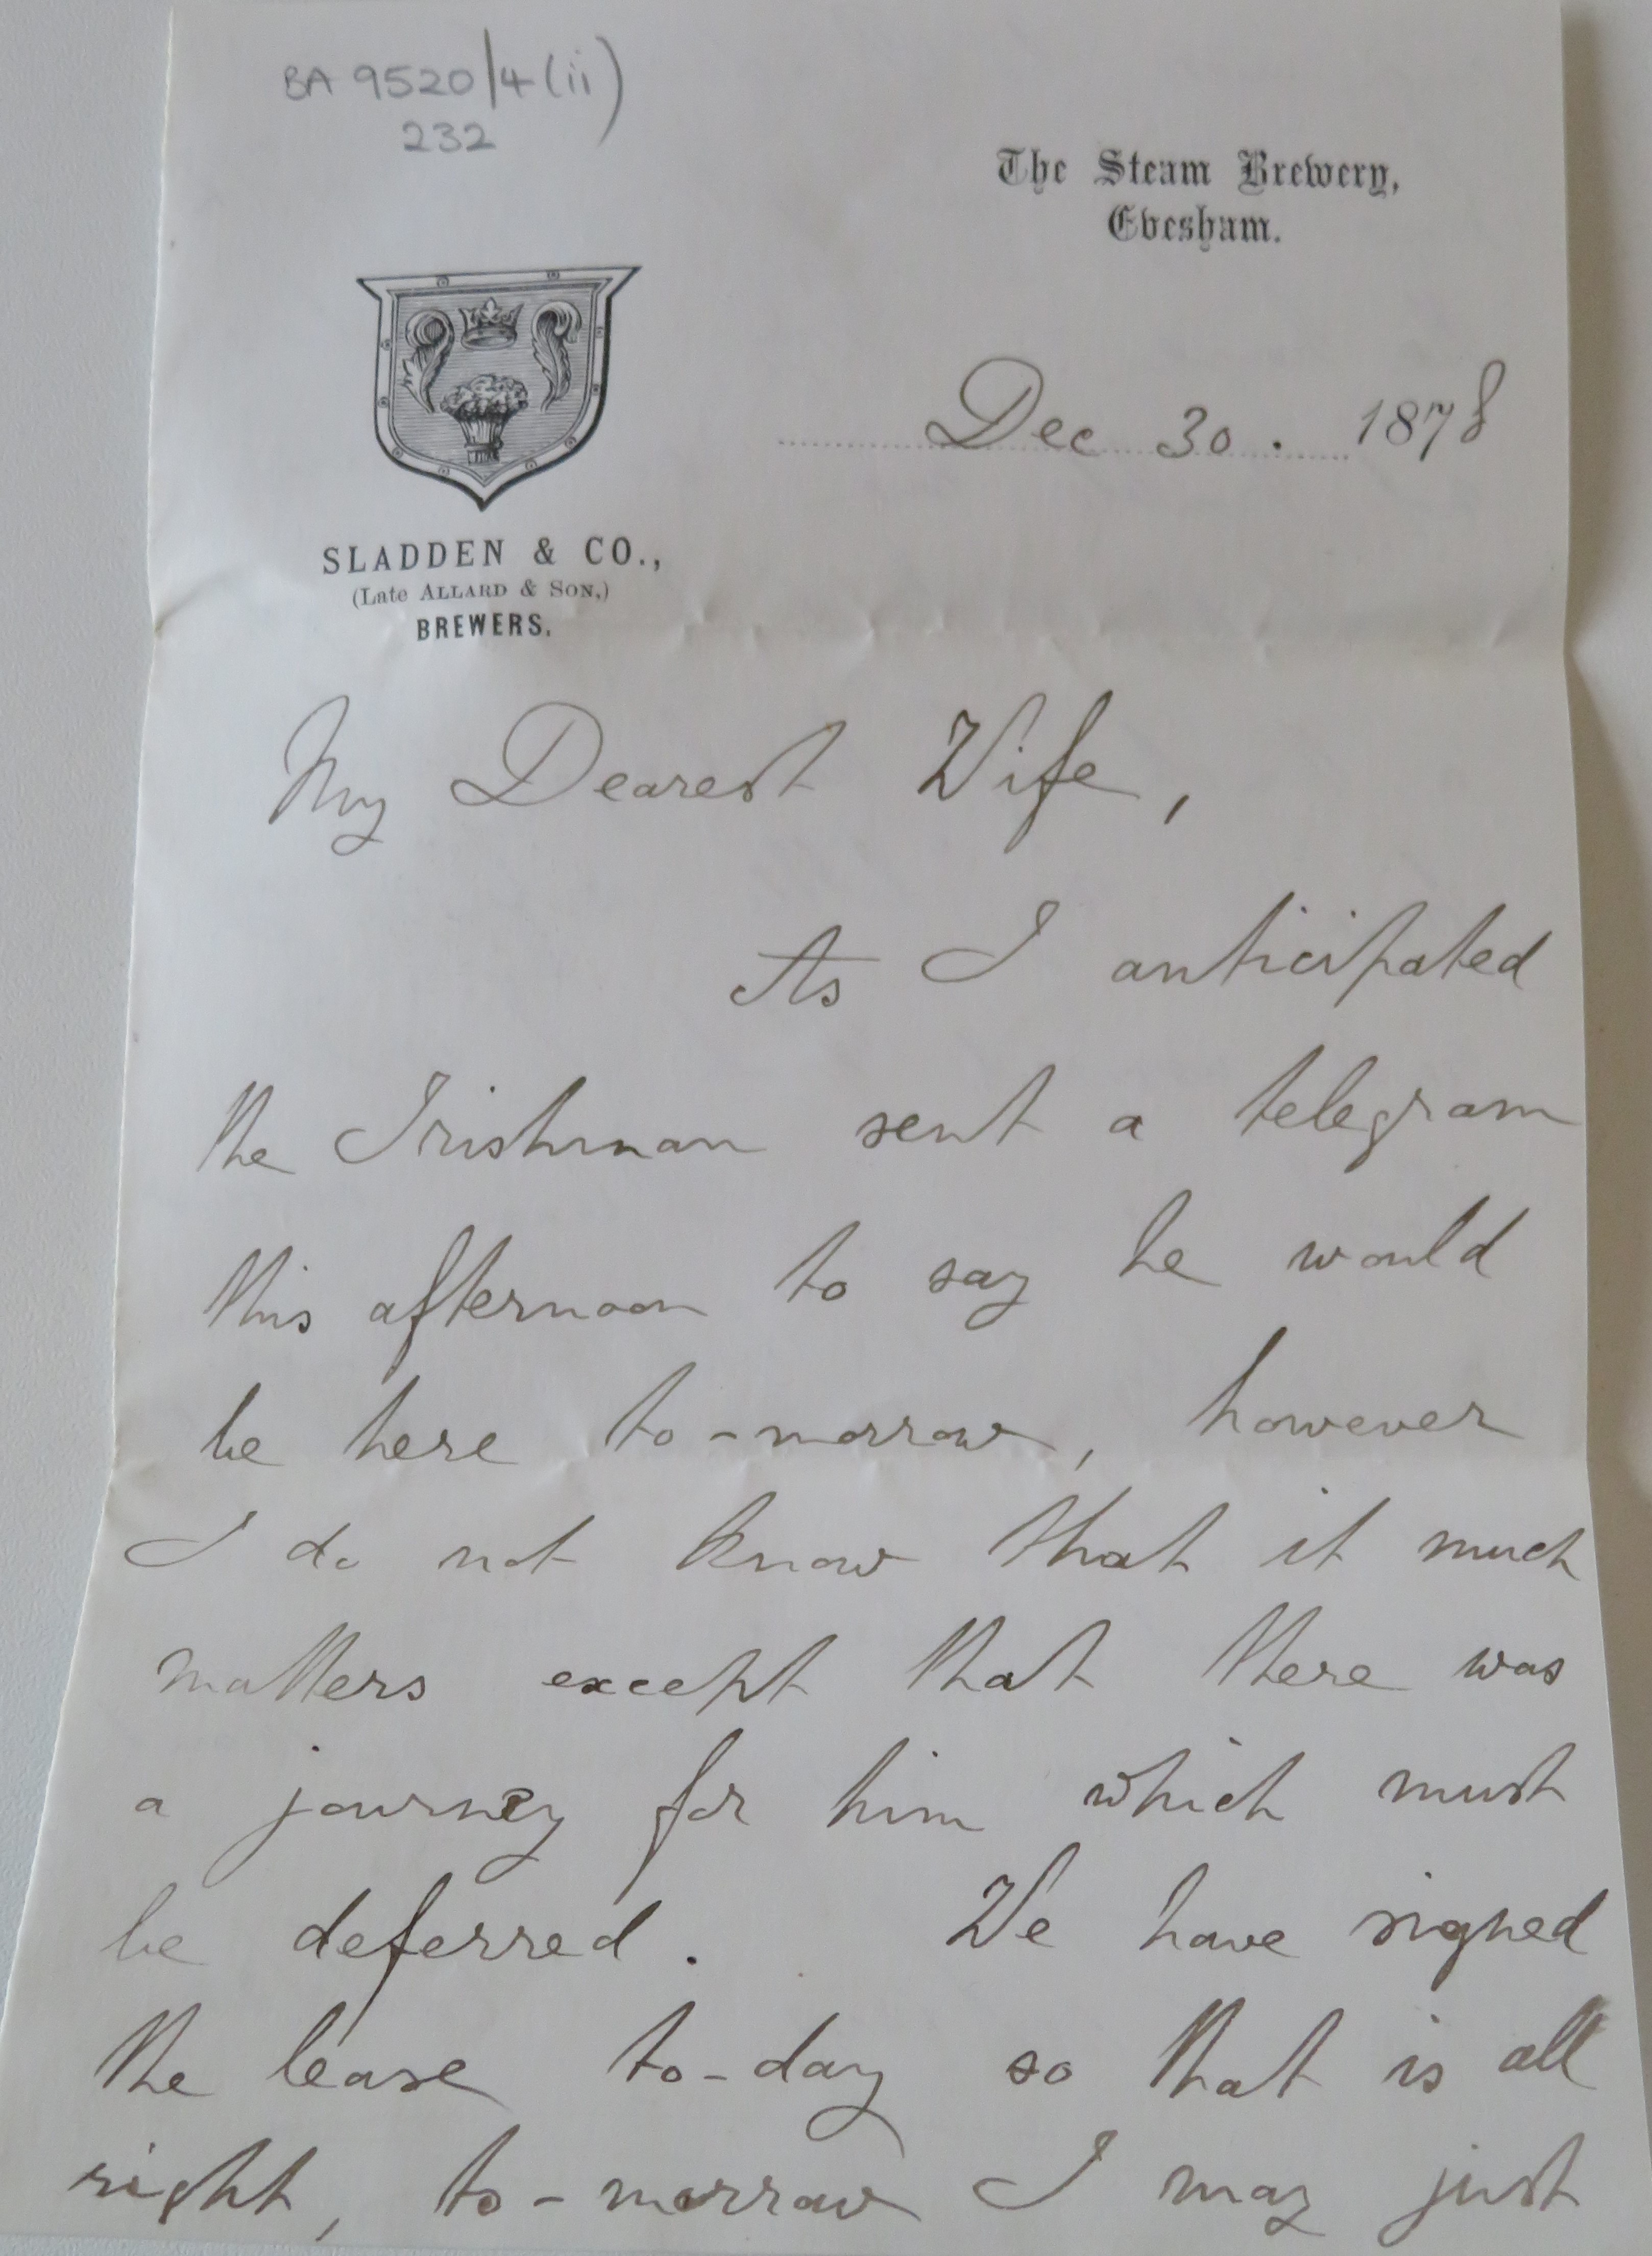 BA 9520/4(ii)
232
The Steam Brewery,
Evesham.
Dec 30. 1878
SLADDEN & CO.,
(Late ALLARD & SON,)
BREWERS.
My Dearest Wife,
As I anticipated
the Irishman sent a telegram
this afternoon to say he would
be here to-morrow, however
I do not know that it much
matters except that there was
a journey for him which must
be deferred. We have signed
the lease to-day so that is all
right, to-morrow I may just